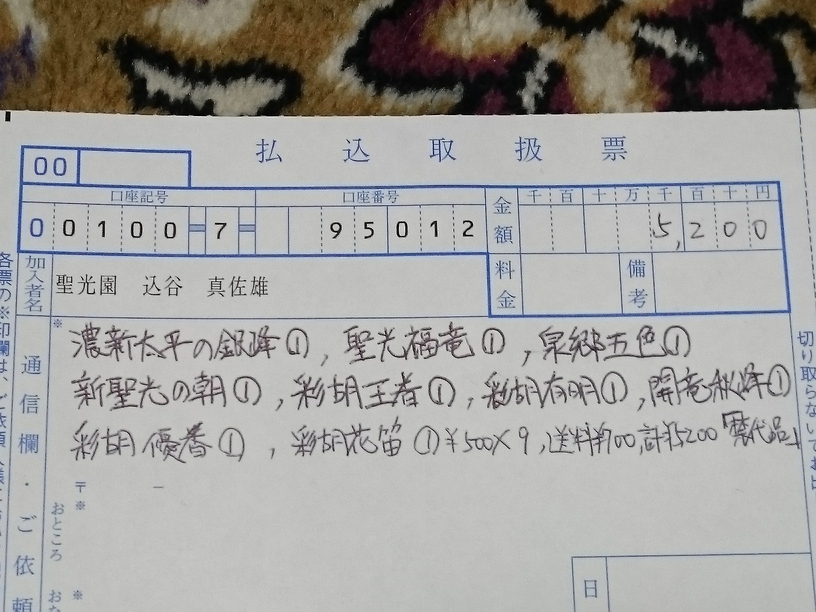 払込取扱票
00
口座記号 口座番号
00100-7- 95012
金額 千百十万千百十円
5,200
加入者名 聖光園 込谷 真佐雄
料金 備考
各票の※印欄は、ご依頼
通信欄・ご依頼
※
濃新太平の銀峰①, 聖光福竜①, 泉郷五色①
新聖光の朝①, 彩胡王者①, 彩胡有明①, 開竜秋峰①
彩胡優春①, 彩胡花笛① ¥500×9, 送料¥700, 計¥5200 「禁代品」
〒
※
おところ
※
おな
日
切り取らないでお出